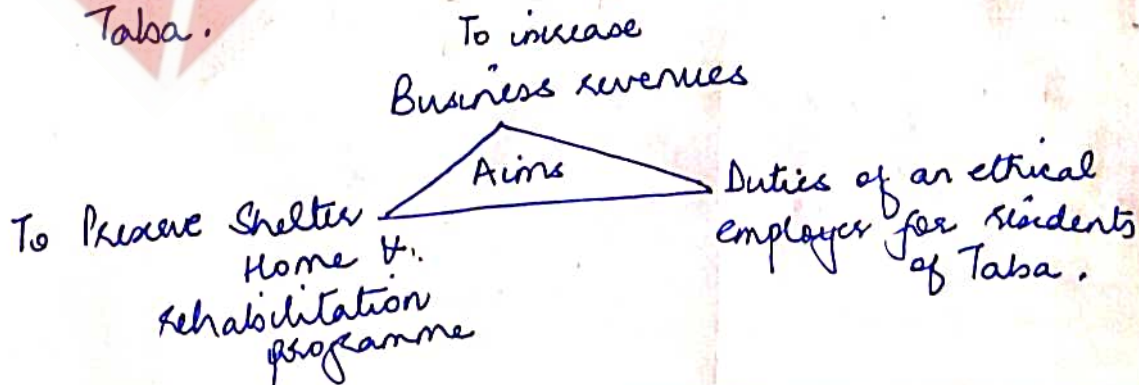 Taba.
To increase
Business revenues
Aims
To Preserve Shelter
Home &
rehabilitation
programme
Duties of an ethical
employer for residents
of Taba.